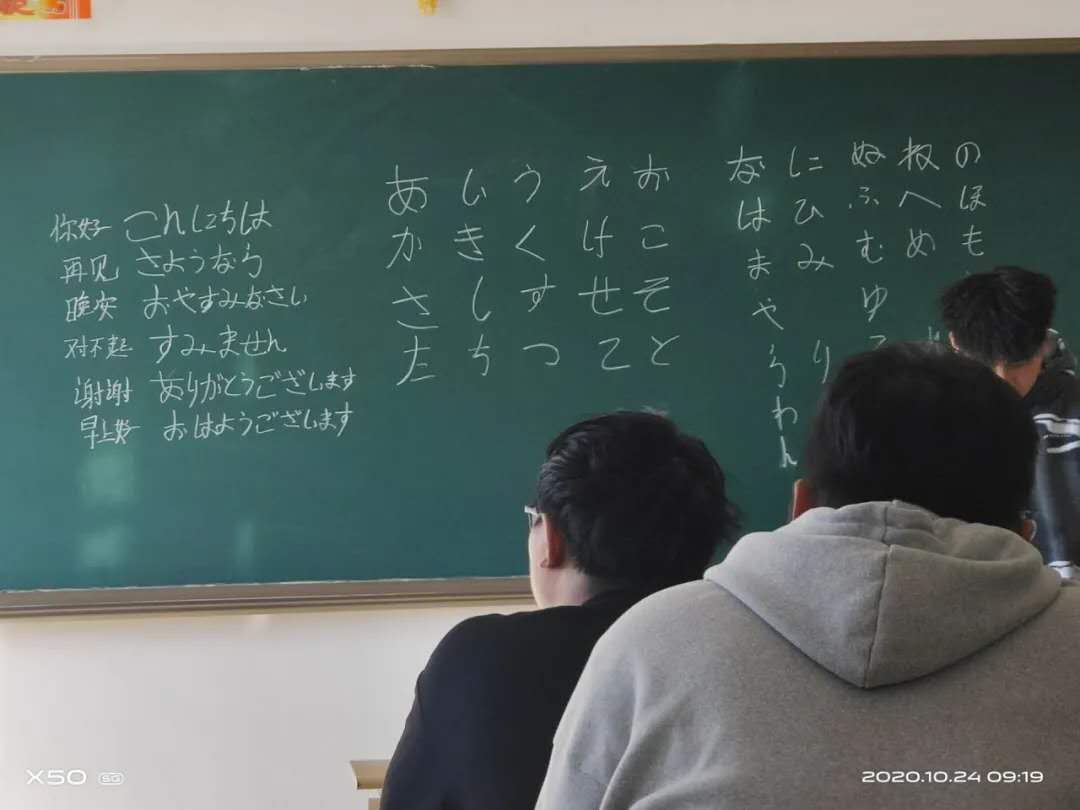 你好 こんにちは
再见 さようなら
晚安 おやすみなさい
对不起 すみません
谢谢 ありがとうございます
早上好 おはようございます
あ い う え お
か き く け こ
さ し す せ そ
た ち つ て と
な に ぬ ね の
は ひ ふ へ ほ
ま み む め も
や ゆ
ら り
わ
ん
X50 5G
2020.10.24 09:19